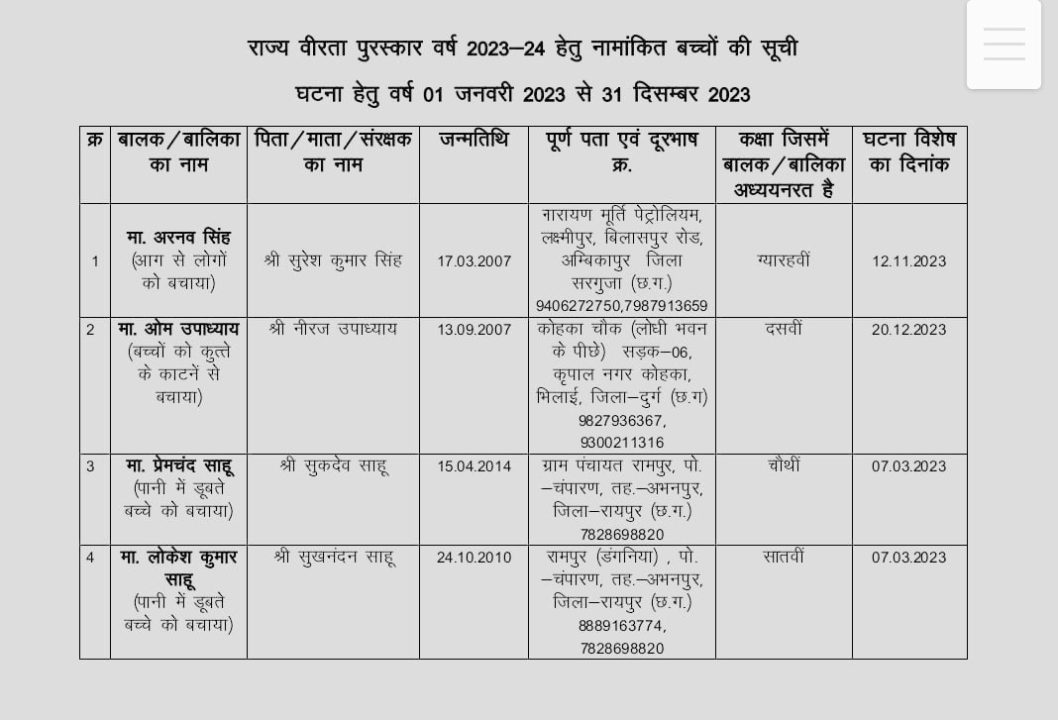 राज्य वीरता पुरस्कार वर्ष 2023–24 हेतु नामांकित बच्चों की सूची
घटना हेतु वर्ष 01 जनवरी 2023 से 31 दिसम्बर 2023
क्र बालक/बालिका का नाम पिता/माता/संरक्षक का नाम जन्मतिथि पूर्ण पता एवं दूरभाष क्र. कक्षा जिसमें बालक/बालिका अध्ययनरत है घटना विशेष का दिनांक
1
मा. अरनव सिंह
(आग से लोगों
को बचाया)
श्री सुरेश कुमार सिंह
17.03.2007
नारायण मूर्ति पेट्रोलियम,
लक्ष्मीपुर, बिलासपुर रोड,
अम्बिकापुर जिला
सरगुजा (छ.ग.)
9406272750,7987913659
ग्यारहवीं
12.11.2023
2
मा. ओम उपाध्याय
(बच्चों को कुत्ते
के काटनें से
बचाया)
श्री नीरज उपाध्याय
13.09.2007
कोहका चौक (लोधी भवन
के पीछे) सड़क–06,
कृपाल नगर कोहका,
भिलाई, जिला–दुर्ग (छ.ग)
9827936367,
9300211316
दसवीं
20.12.2023
3
मा. प्रेमचंद साहू
(पानी में डूबते
बच्चे को बचाया)
श्री सुकदेव साहू
15.04.2014
ग्राम पंचायत रामपुर, पो.
–चंपारण, तह.–अभनपुर,
जिला–रायपुर (छ.ग.)
7828698820
चौथीं
07.03.2023
4
मा. लोकेश कुमार
साहू
(पानी में डूबते
बच्चे को बचाया)
श्री सुखनंदन साहू
24.10.2010
रामपुर (डंगनिया) , पो.
–चंपारण, तह.–अभनपुर,
जिला–रायपुर (छ.ग.)
8889163774,
7828698820
सातवीं
07.03.2023